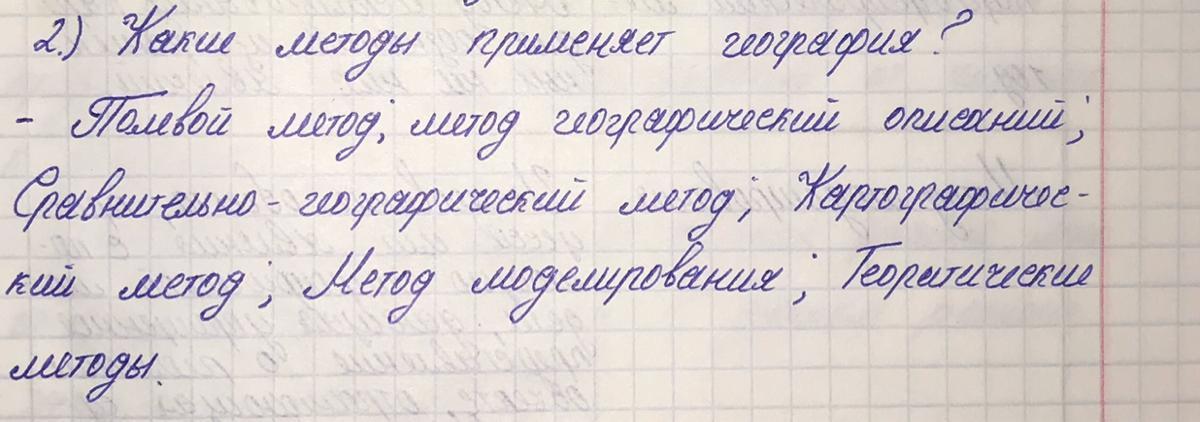 2.) Какие методы применяет география?
- Полевой метод; метод географический описаний;
Сравнительно-географический метод; Картографичес-
кий метод; Метод моделирования; Теоратические
методы.